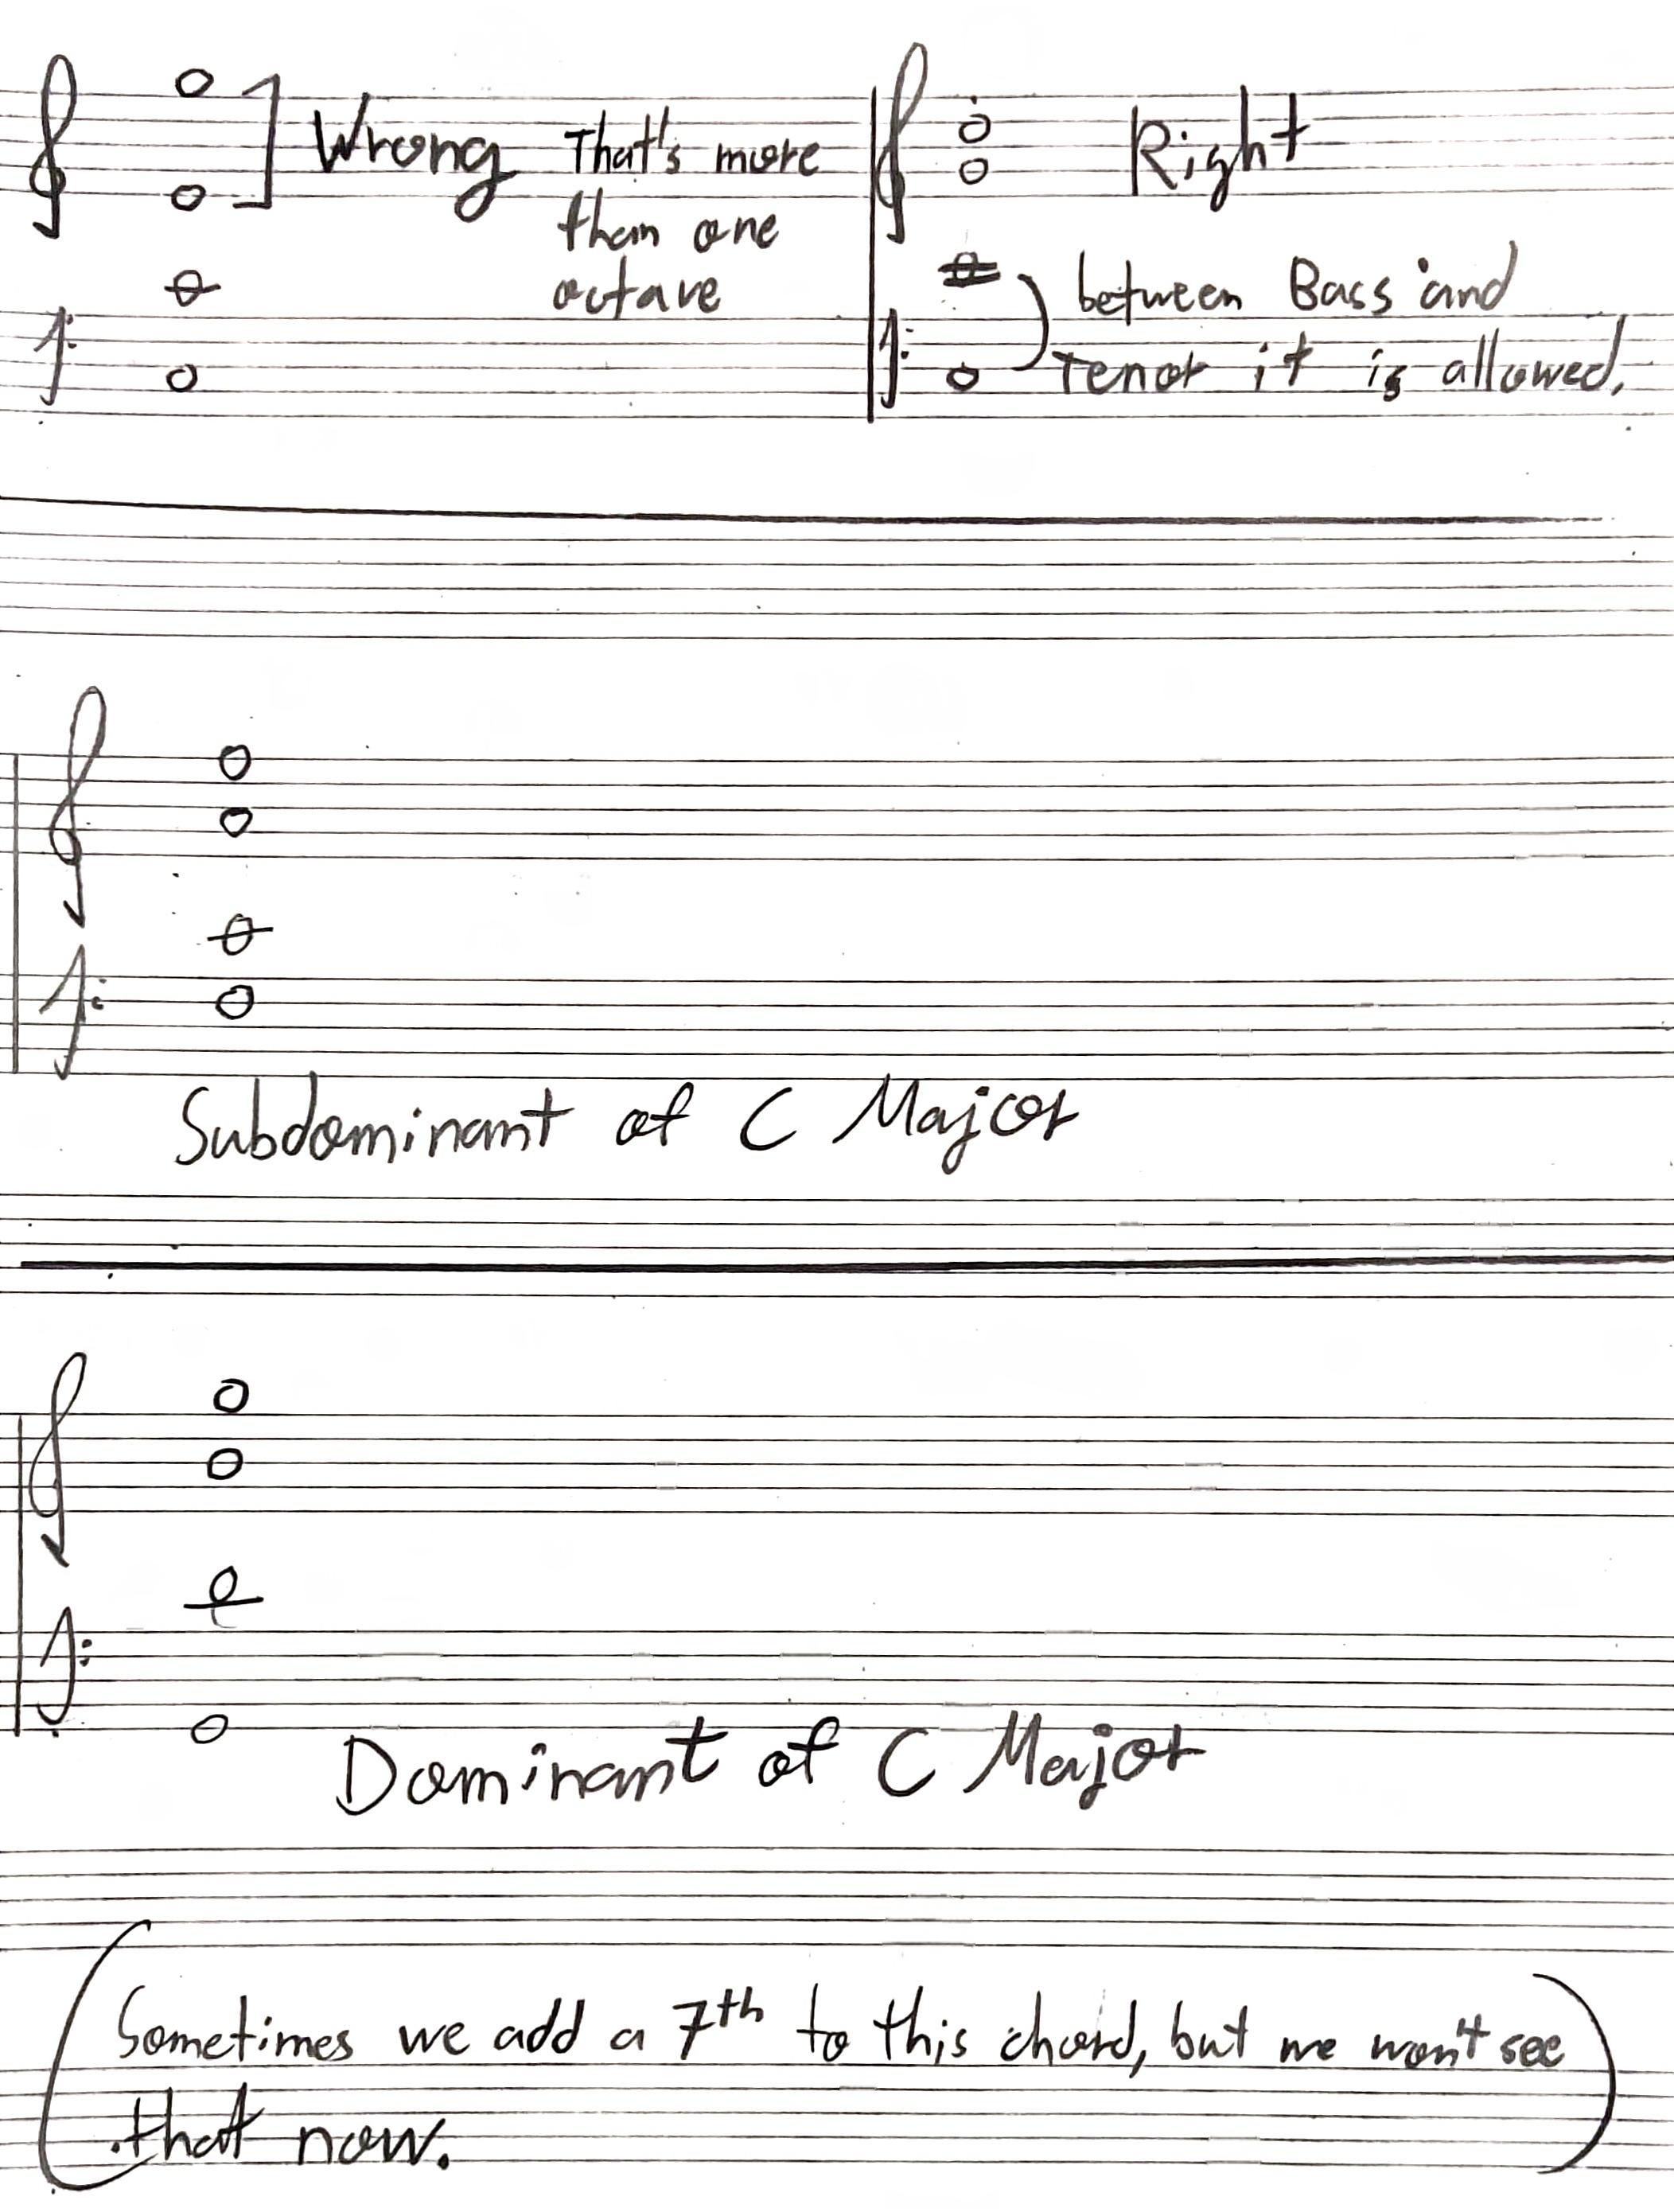 Wrong That's more
than one
octave
Right
between Bass and
Tenor it is allowed.
Subdominant of C Major
Dominant of C Major
(Sometimes we add a 7th to this chord, but we won't see
that now.)